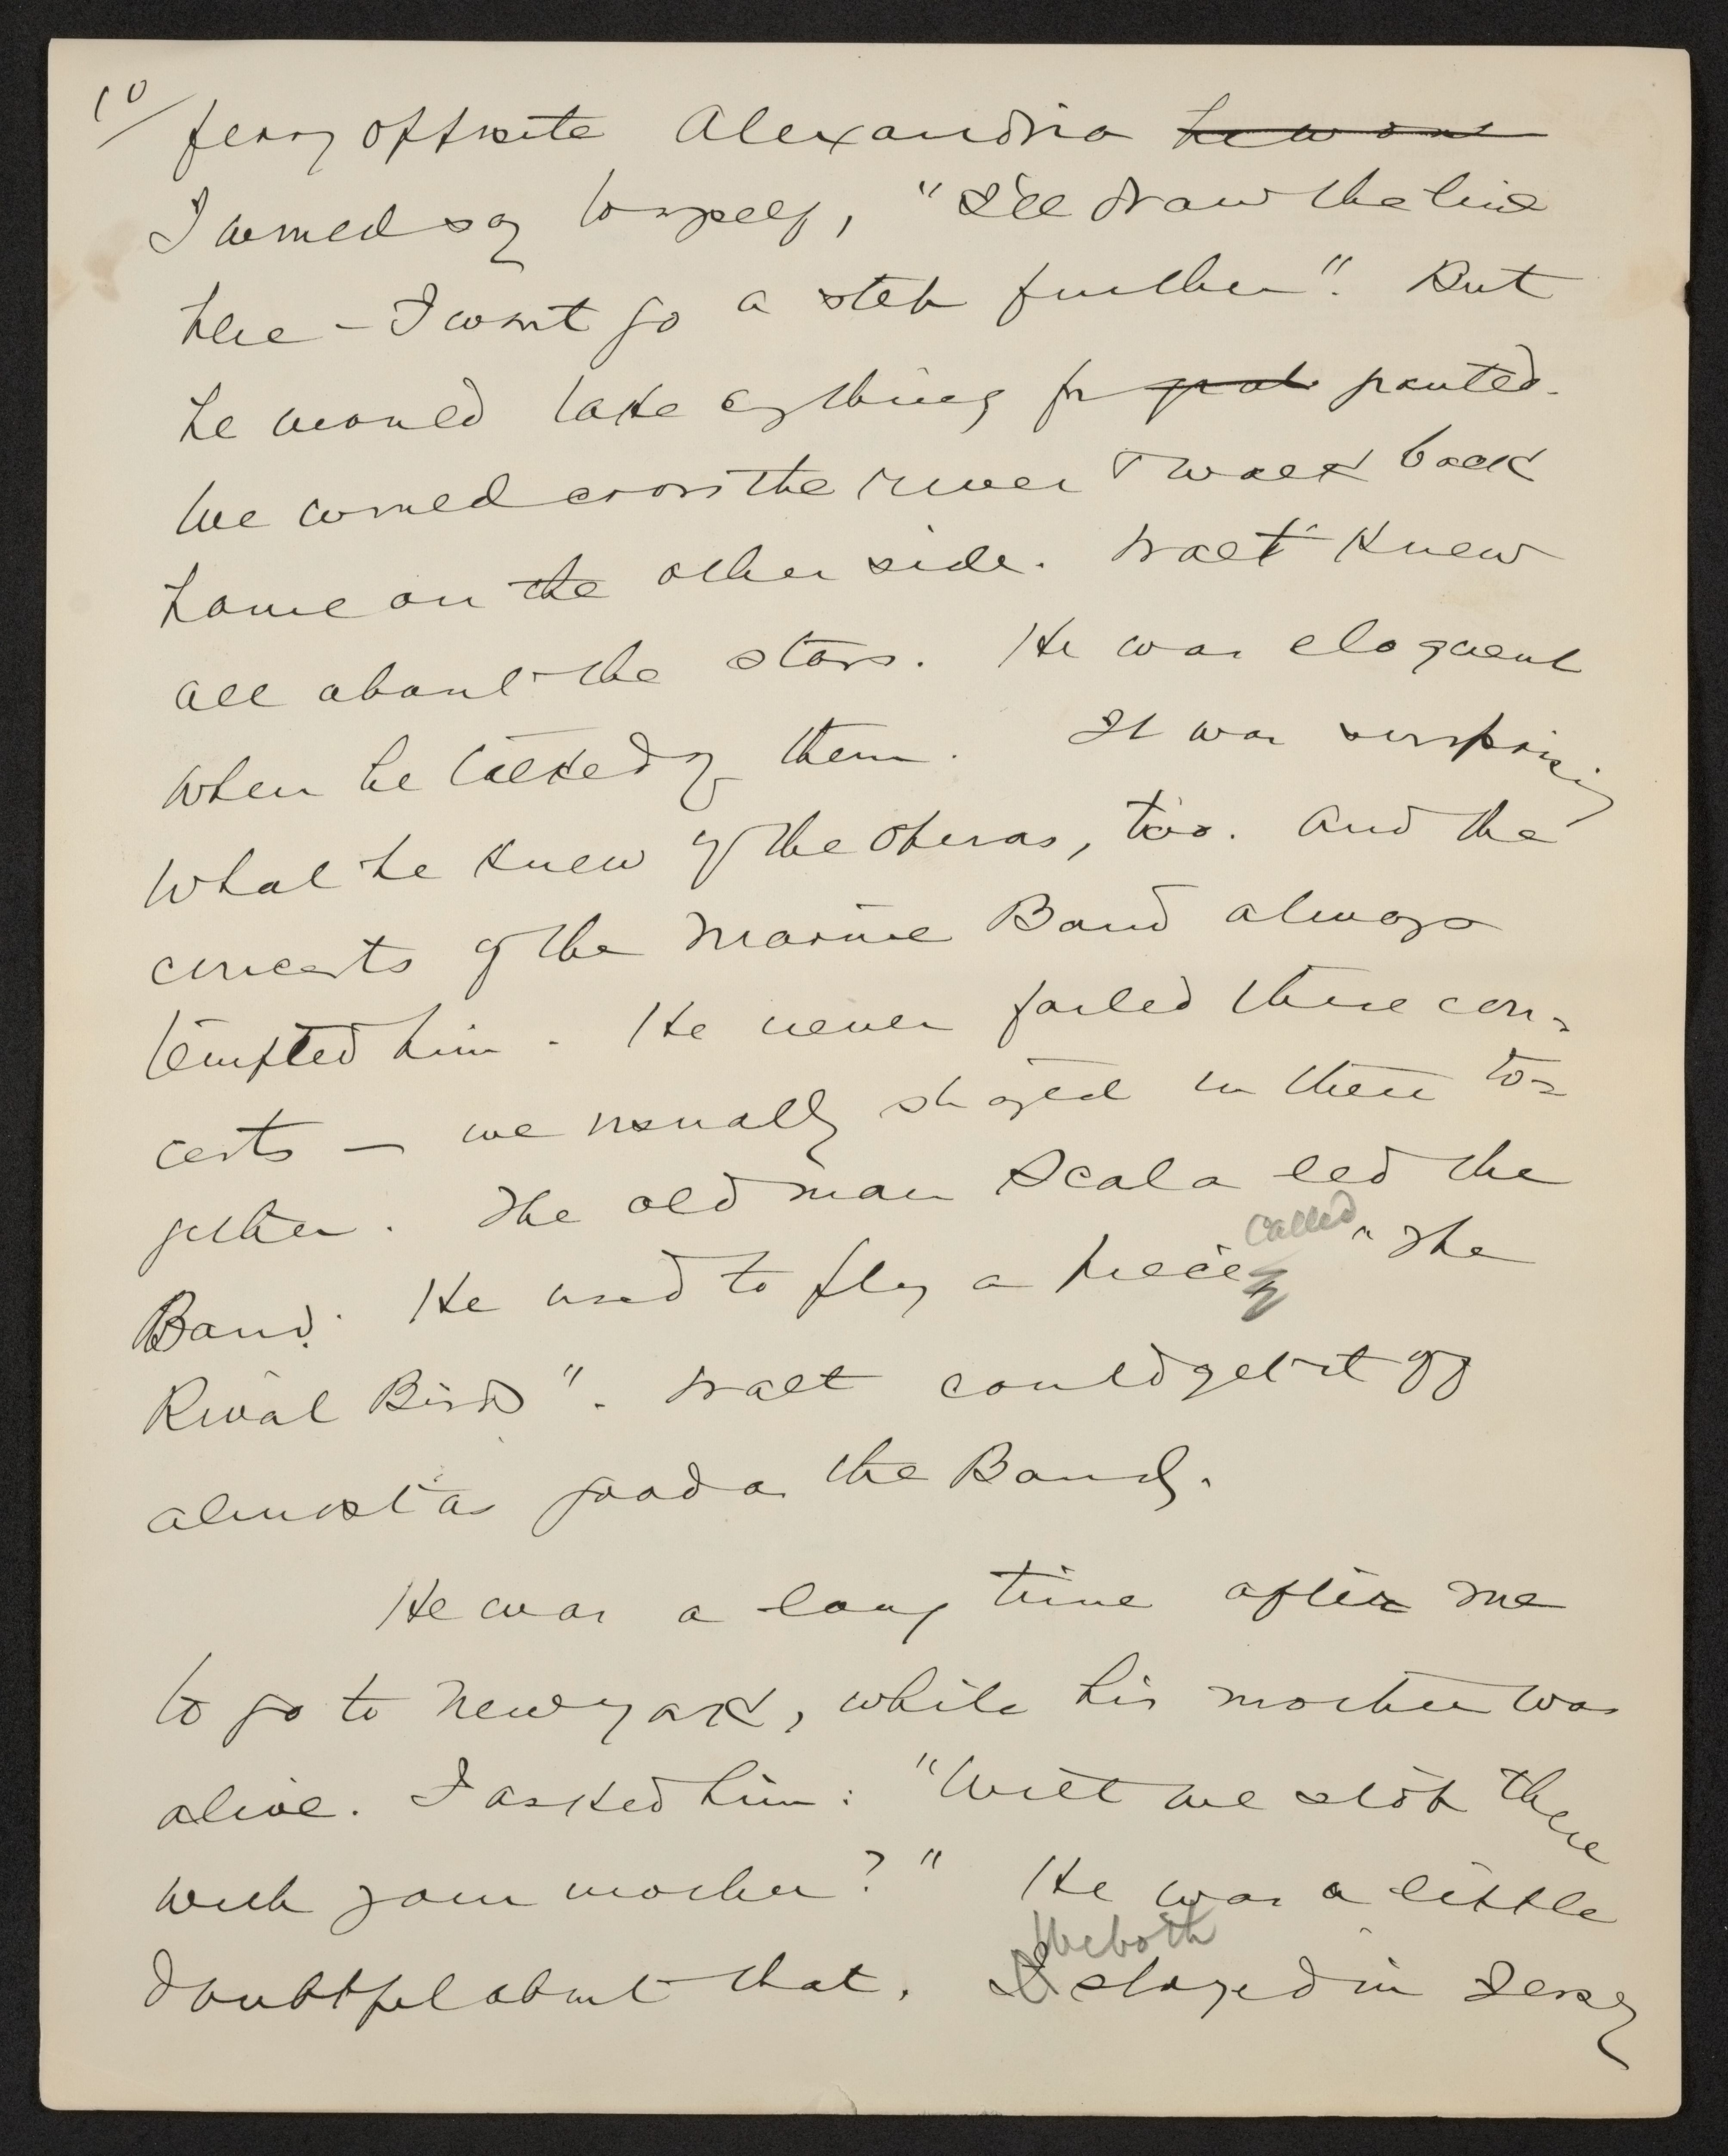 10/
ferry opposite Alexandria he wou
I would say to myself, "I'll draw the line
here – I wont go a step further". But
he would take eything for grat granted.
We would cross the river & walk back
home on the other side. Walt knew
all about the stars. He was eloquent
when he talked of them. It was surprising
what he knew of the operas, too. And the
concerts of the Marine Band always
tempted him. He never failed these con-
certs – we usually shared in them to-
gether. The old man Scala led the
called
Band. He used to play a piece "The
Rival Birds". Walt could get it off
almost as good as the Band.
He was a long time after me
to go to New York, while his mother was
alive. I asked him: "Will we stop there
with your mother?" He was a little
We both
doubtful about that. I stayed in Jersey